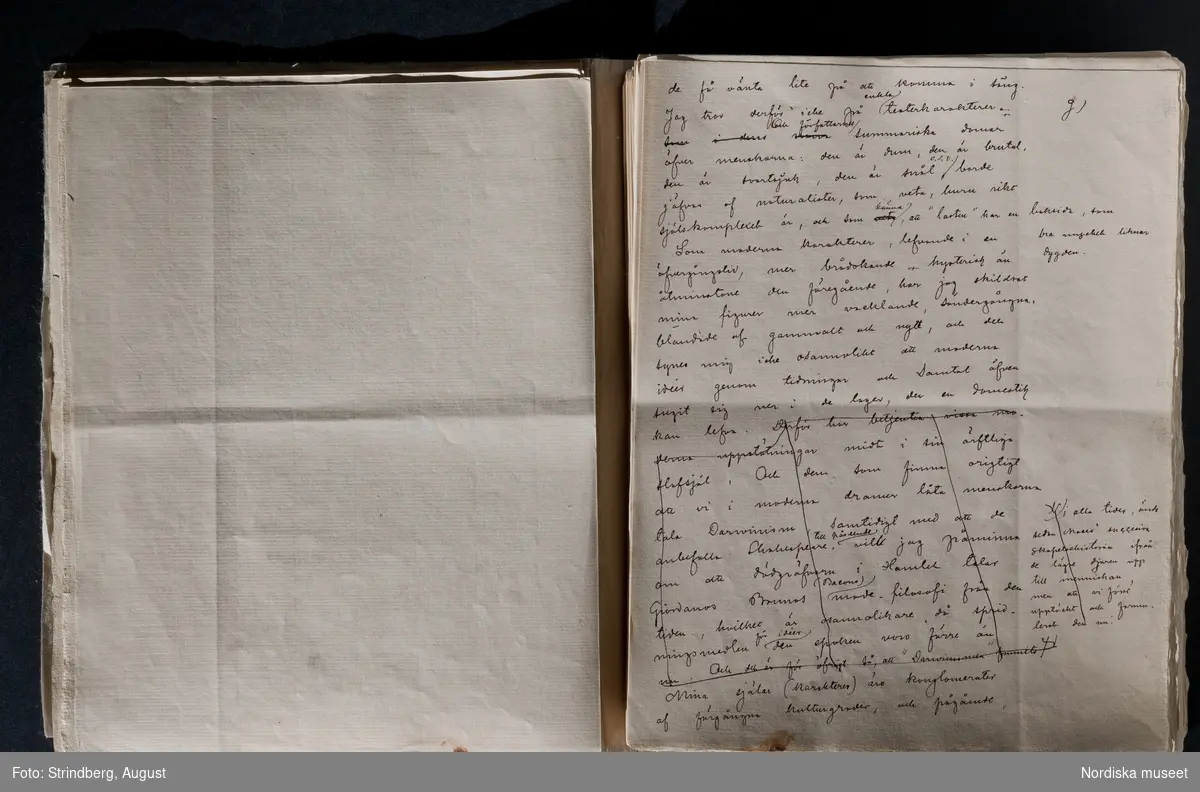 de få vänta lite på att komma i tång.
9)
Jag tror derför icke på enkla teaterkarakterer.
och författarne
i dens summariska domar
öfver menskorna: den är dum, den är brutal,
den är svartsjuk, den är snål, o.s.v. borde
jäfvas af naturalister, som veta, huru rikt
själskomplexet är, och som känna, att "lasten" har en baksida, som
bra mycket liknar
dygden.
Som moderna karakterer, lefvande i en
öfvergångstid, mer brådskande hysterisk än
åtminstone den föregående, har jag skildrat
mina figurer mer vacklande, söndergångna,
blandade af gammalt och nytt, och det
synes mig icke osannolikt att moderna
idéer genom tidningar och Samtal äfven
sugit sig ner i de lager, der en domestik
kan lefva. Derför har betjenten vissa mo-
derna uppstötningar midt i sin ärftliga
slafsjäl. Och dem som finna origtigt
att vi i moderna dramer låta menskorna
tala Darwinism samtidigt med att de
anbefalla Shakespeare, till påseende, vill jag påminna
om att dödgräfvarn i Hamlet talar
Giordanos Brunos (Bacons) mode-filosofi från den
tiden, hvilket är osannolikare, då sprid-
ningsmedlen för idéer den voro färre än
nu. Och det är för öfrigt så, att "Darwinismen" funnits
i alla tider, ända
sedan successiva
skapelsehistoria ifrån
de lägre djuren upp
till menniskan,
men att vi först
upptäckt och formu-
lerat den nu.
Mina själar (karakterer) äro konglomerater
af förgångna kulturgrader, och pågående,
Foto: Strindberg, August
Nordiska museet